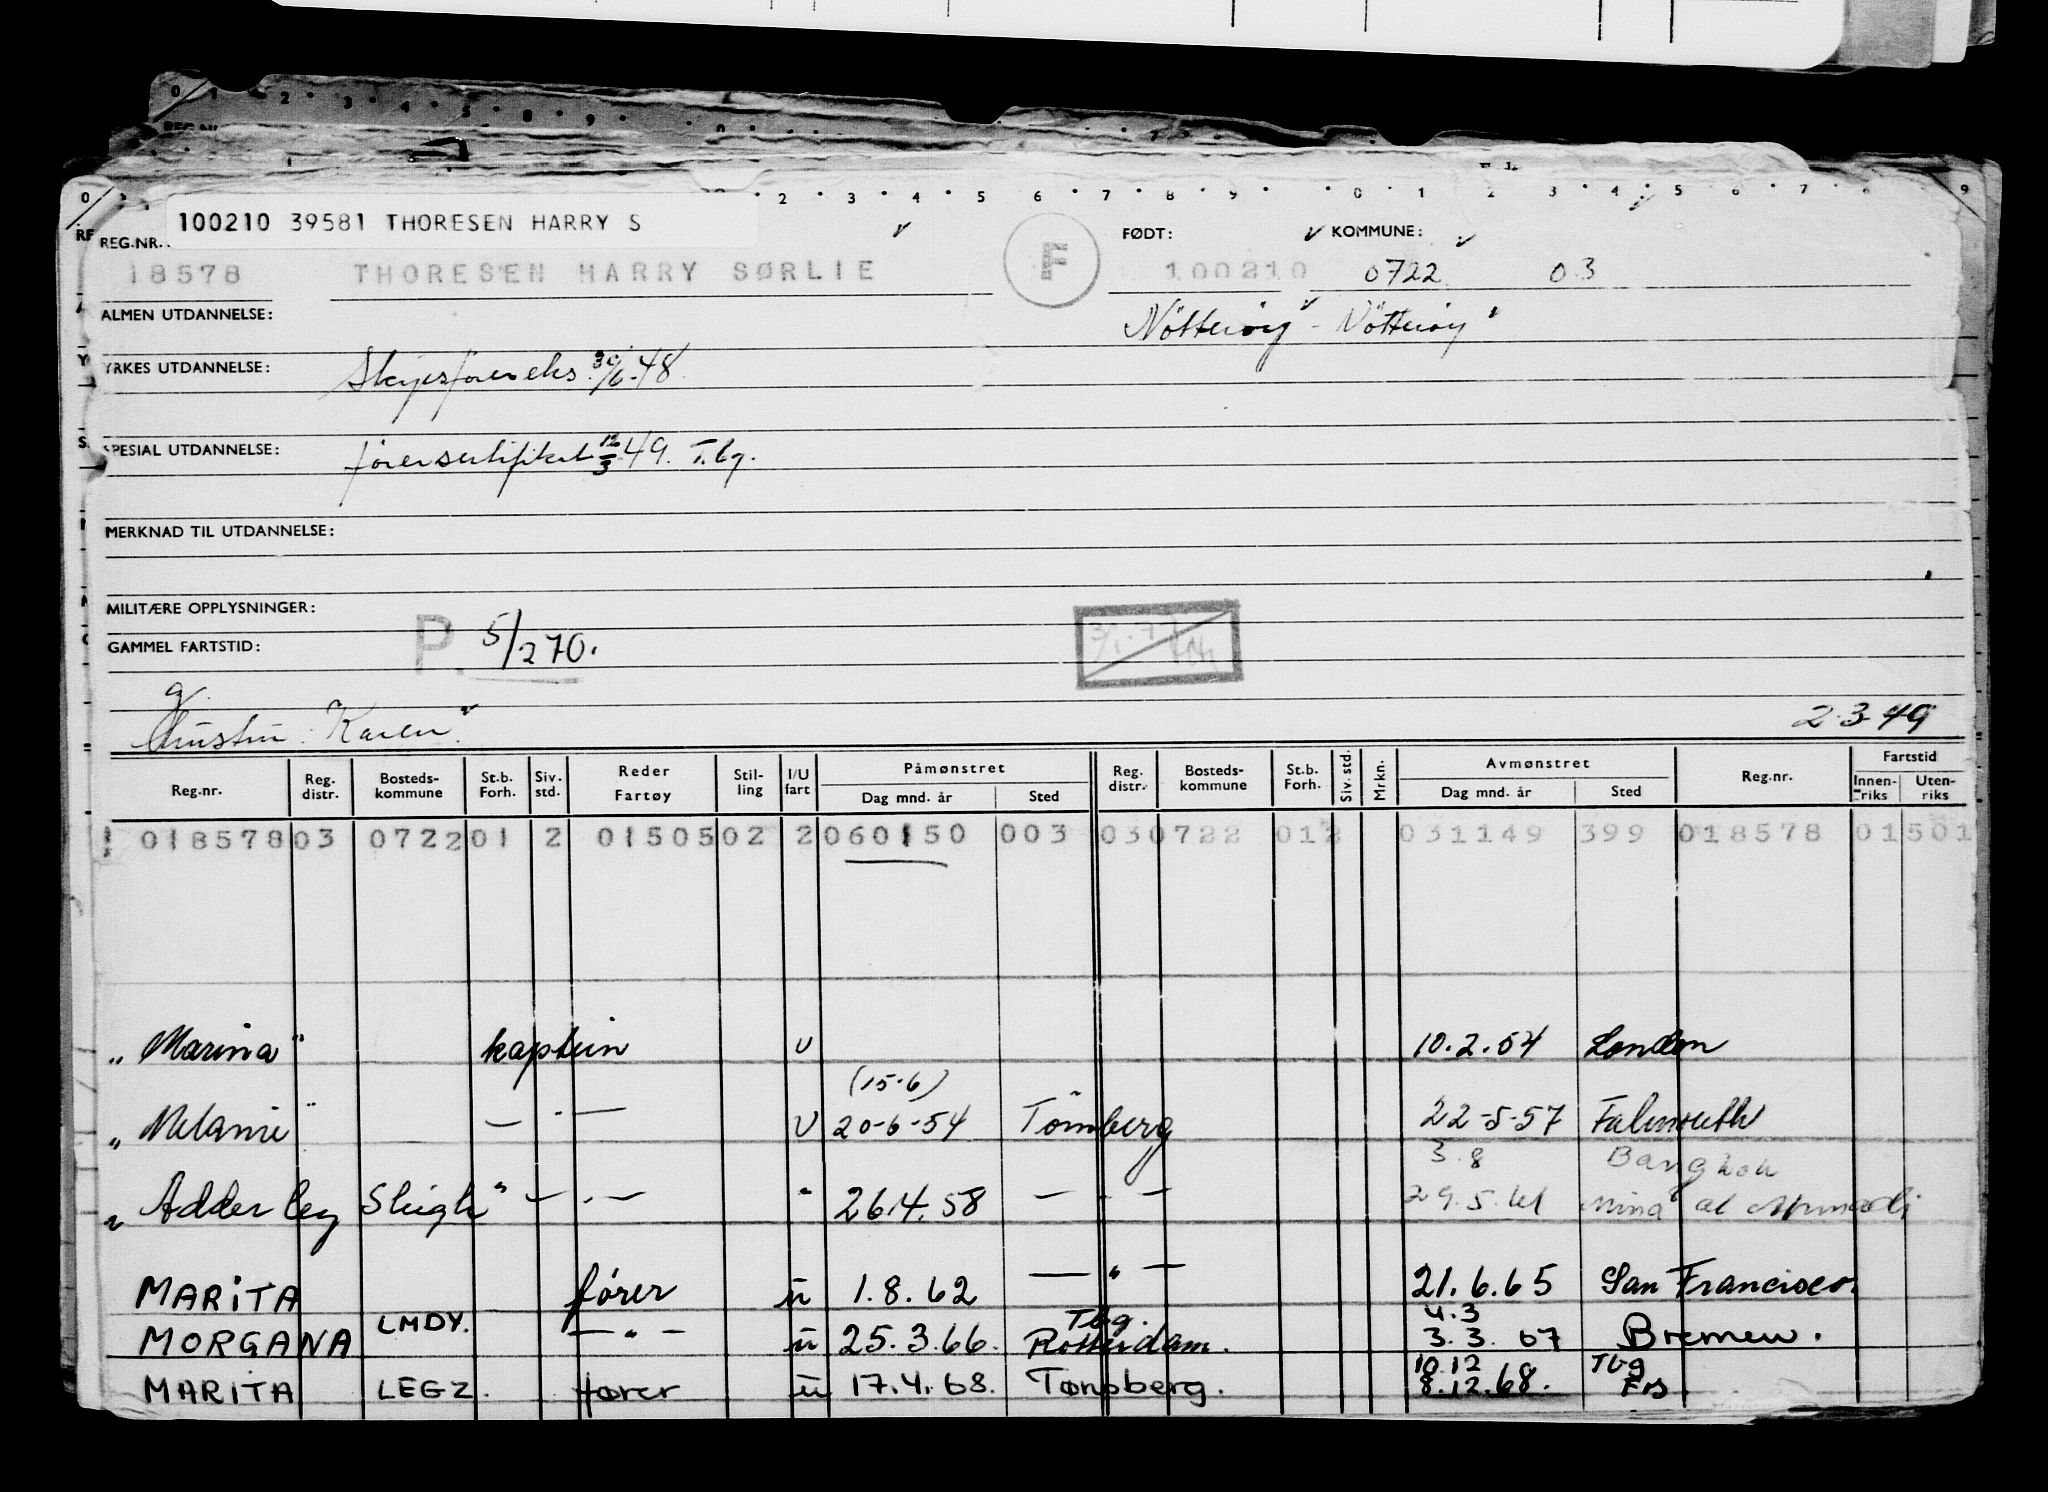 0 1 2 3 4 5 8 9
REG.NR.
0 2 3 4 5 6 7 8 9 0 1 2 3 4 5 6 7 8 9
100210 39581 THORESEN HARRY S
REG.NR. F FØDT: KOMMUNE:
18578 THORESEN HARRY SØRLIE 100210 0722 03
ALMEN UTDANNELSE: Nötteröy - Nötteröy
YRKES UTDANNELSE: 30/6-48
SPESIAL UTDANNELSE: førersertifikat 12/3 49. Tbg.
MERKNAD TIL UTDANNELSE:
MILITÆRE OPPLYSNINGER:
GAMMEL FARTSTID: P. 5/270.
Karen 2-3-49
Reg.nr. Reg. distr. Bosteds-kommune St.b. Forh. Siv. std. Reder Fartøy Stil-ling I/U fart Påmønstret Dag mnd. år Sted Reg. distr. Bosteds-kommune St.b. Forh. Siv. std. Mrkn. Avmønstret Dag mnd. år Sted Reg.nr. Fartstid Innen-riks Uten-riks
018578 03 0722 01 2 01505 02 2 060150 003 03 0722 01 2 031149 399 018578 01 501
„Marina" kaptein U 10.2.54 London
(15-6)
„Melanie" — " — U 20-6-54 Tönsberg 22-5-57 Falmouth
3.8 Bangkok
„Adderley Sleigh" — . — " 26.4.58 — . — 29.5.61 Mina al
MARITA fører u 1.8.62 — " — 21.6.65 San Francisco.
MORGANA LMDY. — " — u 25.3.66. Tbg. Rotterdam. 4.3 3.3.67 Bremen.
MARITA LEGZ. fører u 17.4.68. Tønsberg. 10.12 8.12.68. Tbg